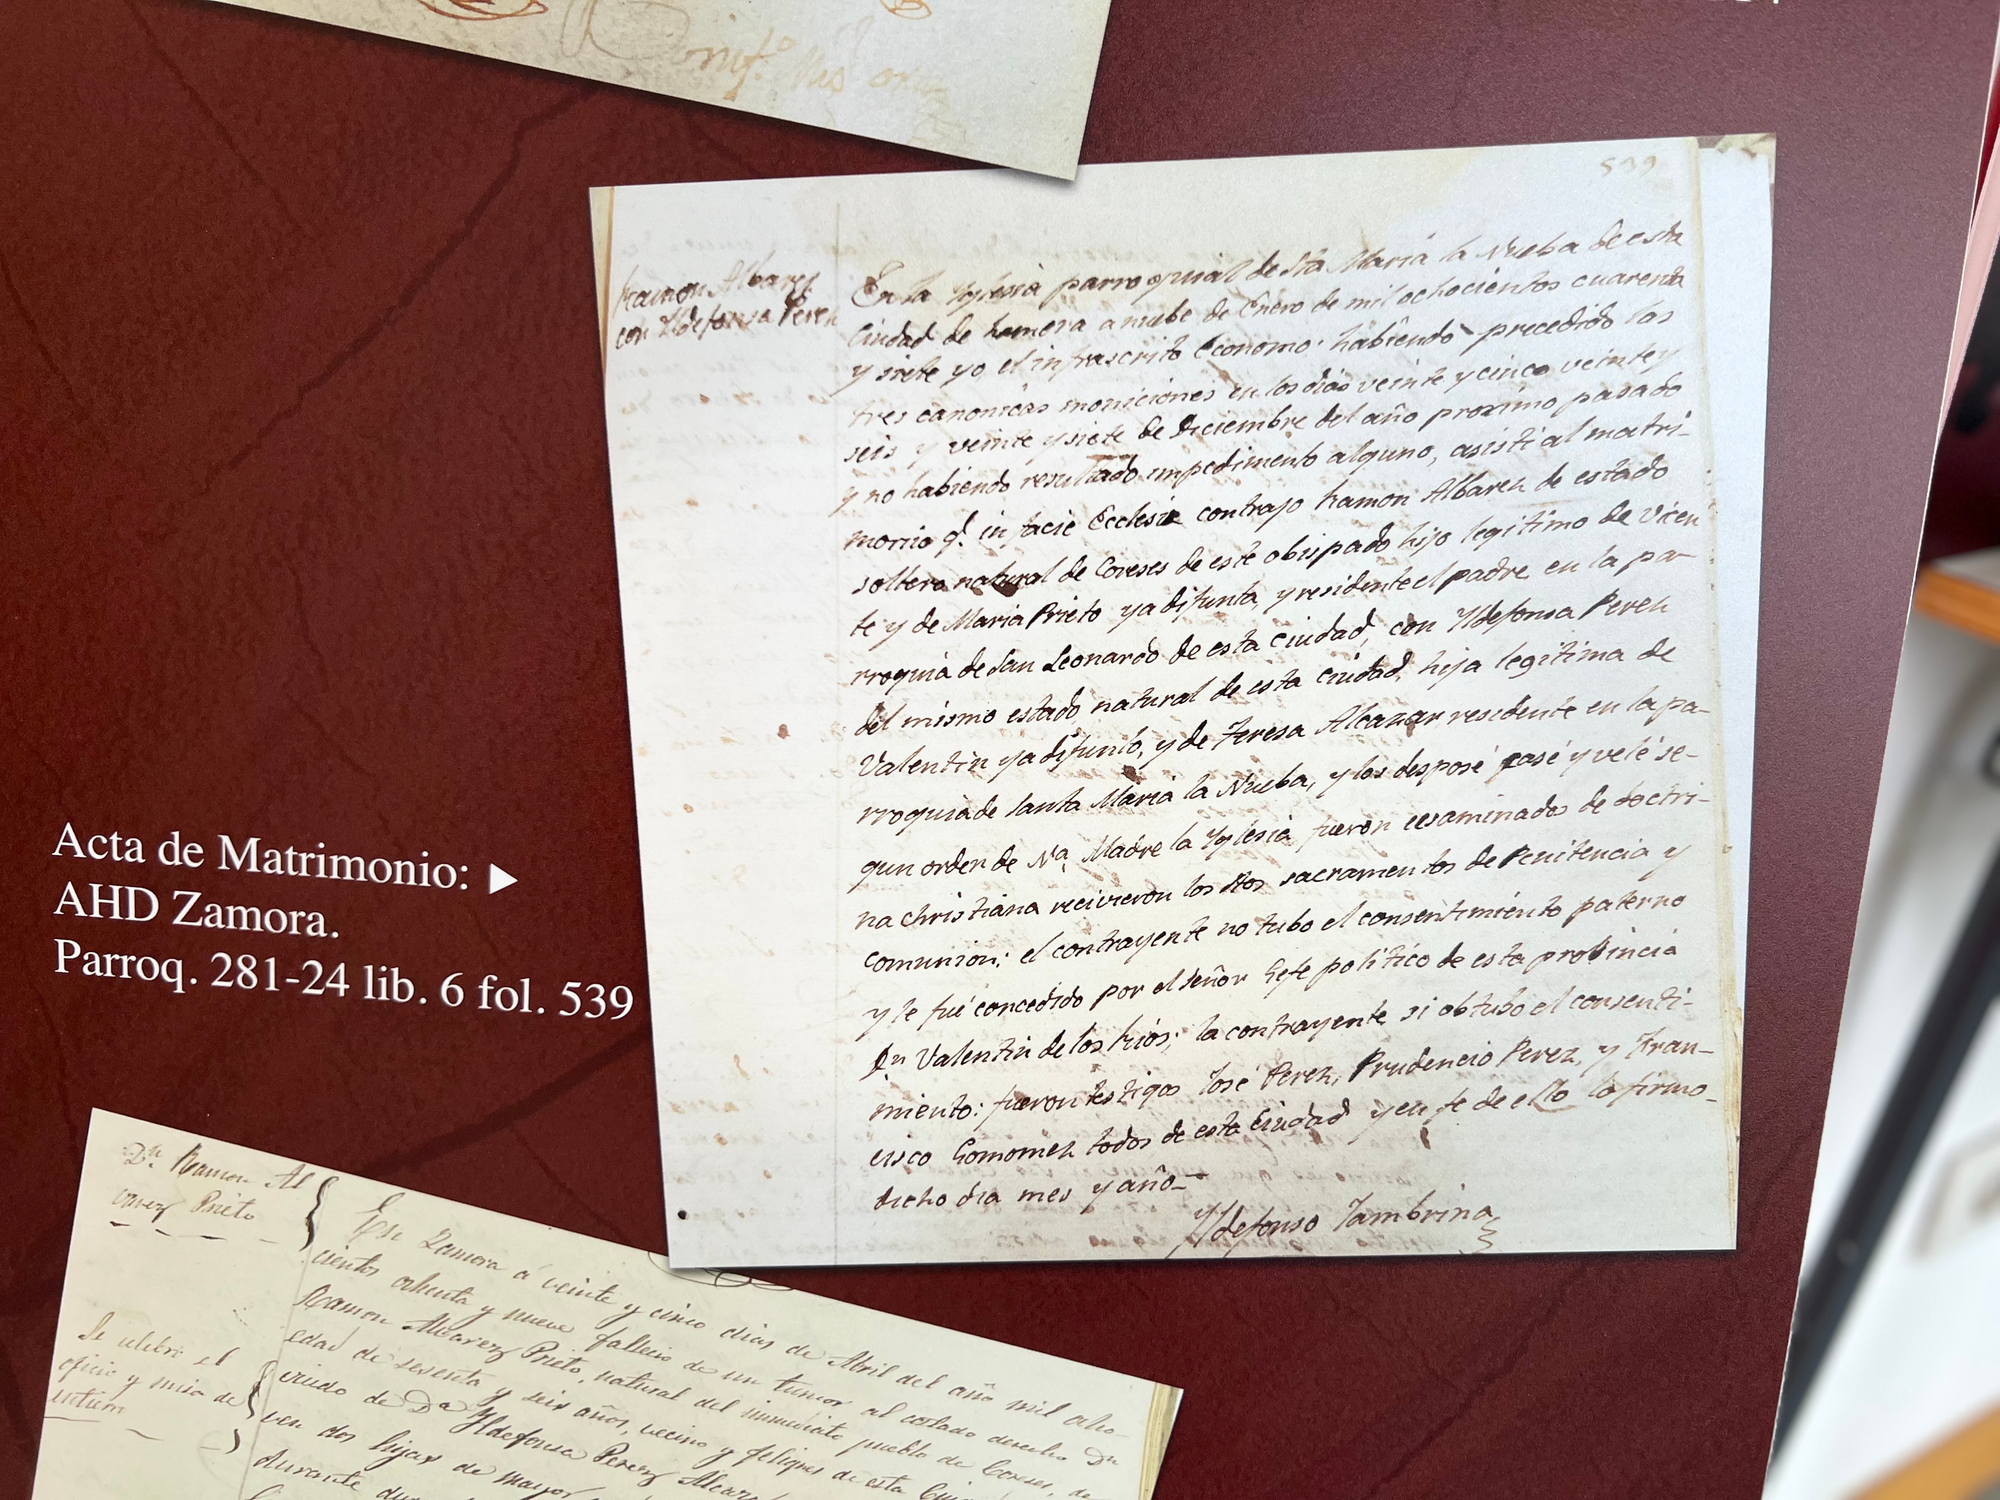 Bonif.º
539
Ramon Albarez
con Yldefonsa Perez
En la Yglesia parroquial de Sta Maria la Nueba de esta
Ciudad de Zamora a nuebe de Enero de mil ochocientos cuarenta
y siete yo el infrascrito Economo habiendo precedido las
tres canonicas moniciones en los dias veinte y cinco veinte y
seis y veinte y siete de Diciembre del año proximo pasado
y no habiendo resultado impedimento alguno, asisti al matri-
monio q.e in facie Eclesie contrajo Ramon Albarez de estado
soltero natural de Coreses de este obispado hijo legitimo de Vicen
te y de Maria Prieto ya difunta, y residente el padre en la pa-
rroquia de San Leonardo de esta Ciudad, con Yldefonsa Perez
del mismo estado natural de esta Ciudad, hija legitima de
Valentin ya difunto, y de Teresa Alcazar residente en la pa-
rroquia de Santa Maria la Nueba, y los desposé casé y velé se-
gun orden de Nª Madre la Yglesia fueron ecsaminados de doctri-
na christiana recivieron los Stos sacramentos de Penitencia y
comunion; el contrayente no tubo el consentimiento paterno
y le fué concedido por el señor Gefe politico de esta probincia
Dn Valentin de los Rios; la contrayente si obtubo el consenti-
miento: fueron testigos José Perez, Prudencio Perez, y Fran-
cisco Gomomez todos de esta Ciudad y en fe de ello lo firmo
dicho dia mes y año
Yldefonso Tambrina
Acta de Matrimonio: ▶
AHD Zamora.
Parroq. 281-24 lib. 6 fol. 539
Dn. Ramon Al
varez Prieto
En Zamora á veinte y cinco dias de Abril del año mil ocho-
cientos ochenta y nueve falleció de un tumor al costado derecho Dn
Ramon Alvarez Prieto, natural del inmediato pueblo de Coreses, de
edad de sesenta y seis años, vecino y feligres de esta
viudo de Da Yldefonsa Perez
Se celebró el
oficio y misa de
entierro
ven dos hijas de mayor
durante